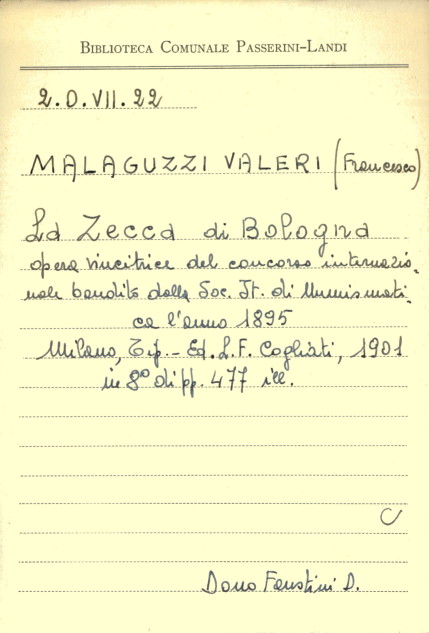 BIBLIOTECA COMUNALE PASSERINI-LANDI
2.O.VII.22
MALAGUZZI VALERI (Francesco)
La Zecca di Bologna
opera vincitrice del concorso internazio-
nale bandito dalla Soc. It. di Numismati-
ca l'anno 1895
Milano, Tip.- Ed. L.F. Cogliati, 1901
in 8º di pp. 477 ill.
C
Dono Faustini D.